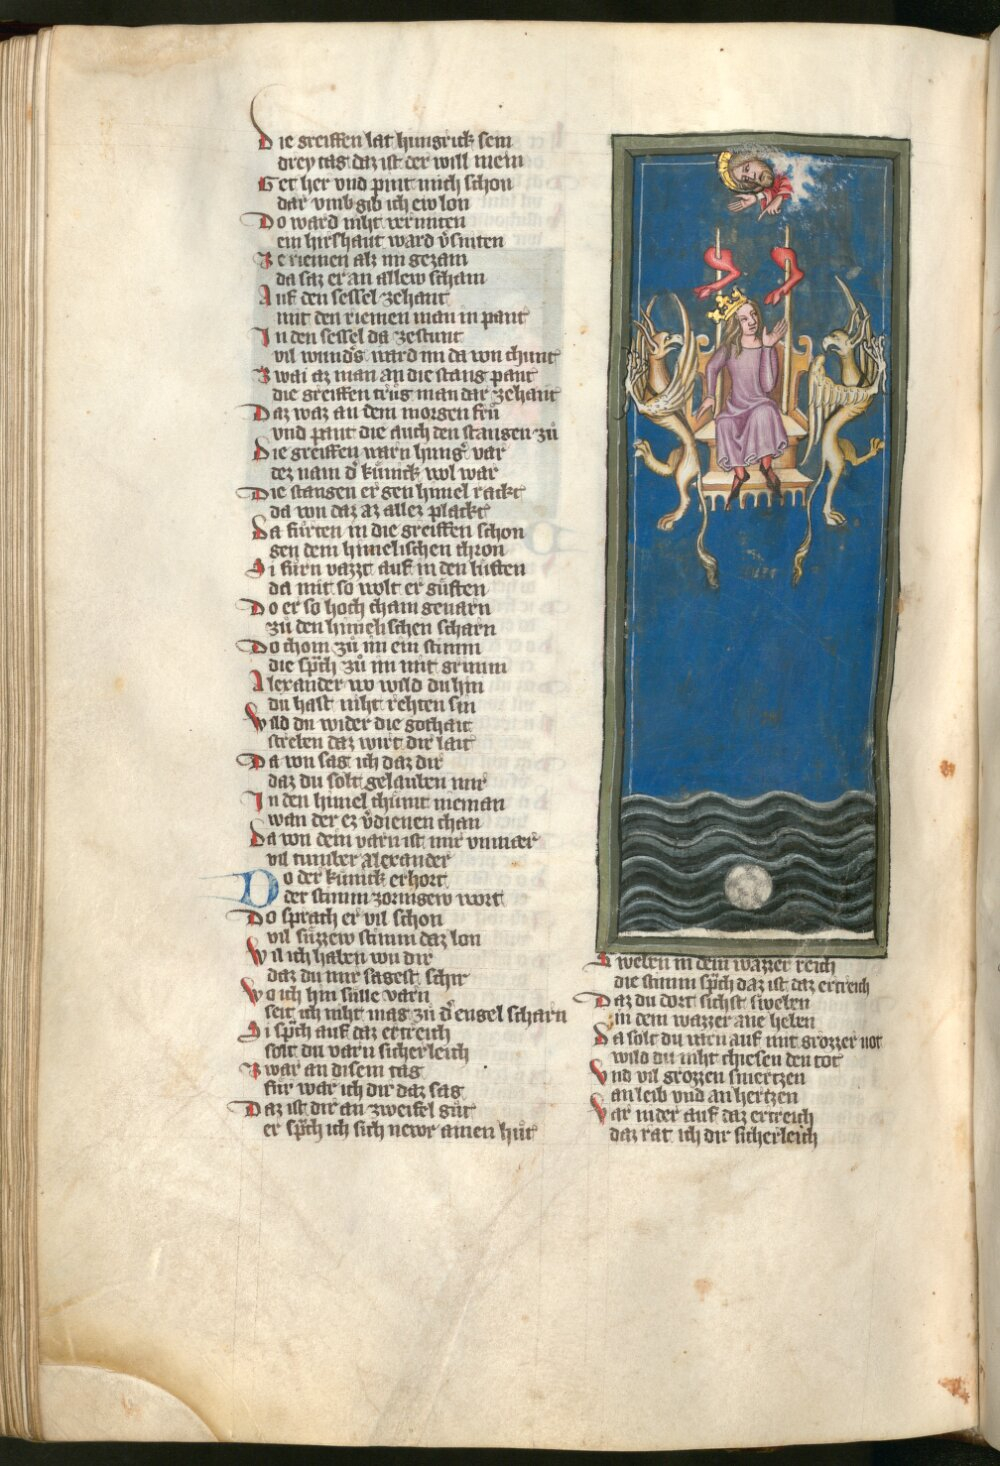 Die greiffen lat hungrick sein
drey tag daz ist der will mein
Get her vnd pint mich schon
dar vmb gib ich ew lon
Do ward niht vermiten
ein hirshaut ward v̓sniten
Ze riemen als im gezam
da saz er an allew scham
Auf den sessel zehant
mit den riemen man in pant
In den sessel da zestunt
vil wund's ward im da von chunt
Zwai az man an die stang pant
die greiffen trůg man dar zehant
Daz waz an dem morgen frů
vnd pant die auch den stangen zů
Die greiffen warn hung'ͬ var
dez nam d' kůnick wol war
Die stangen er gen himel rackt
da von daz az allez plackt
Da fůrten in die greiffen schon
gen dem himelischen thron
Si fůrn vazzt auf in den lůften
da mit so wolt er gůften
Do er so hoch cham geuarn
zů den himelischen scharn
Do chom zů im ein stimm
die sp̄ch zů im mit grimm
Alexander wo wild du hin
du hast niht rehten sin
Wild du wider die gothait
streben daz wirt dir lait
Da von sag ich daz dir
daz du solt gelauben mir
In den himel chumt nieman
wan der ez v̓dienen chan
Da von dein varn ist mir vnmær
vil tumber Alexander
Do der kůnick erhort
der stimm zornigew wort
Do sprach er vil schon
vil sůzzew stimm daz lon
Wil ich haben von dir
daz du mir sagest schir
Wo ich hin sůlle varn
seit ich niht mag zů d' engel scharn
Si sp̄ch auf daz ertreich
solt du varn sicherleich
Zwar an disem tag
fůr war ich dir daz sag
Daz ist dir an zweifel gůt
er sp̄ch ich sich newr ainen hůt
Sweben in dem wazzer reich
die stimm sp̄ch daz ist daz ertreich
Daz du dort sichst sweben
in dem wazzer ane heben
Da solt du varn auf mit grozzer not
wild du niht chiesen den tot
Vnd vil grozzen smertzen
an leib vnd an hertzen
Var nider auf daz ertreich
daz rat ich dir sicherleich